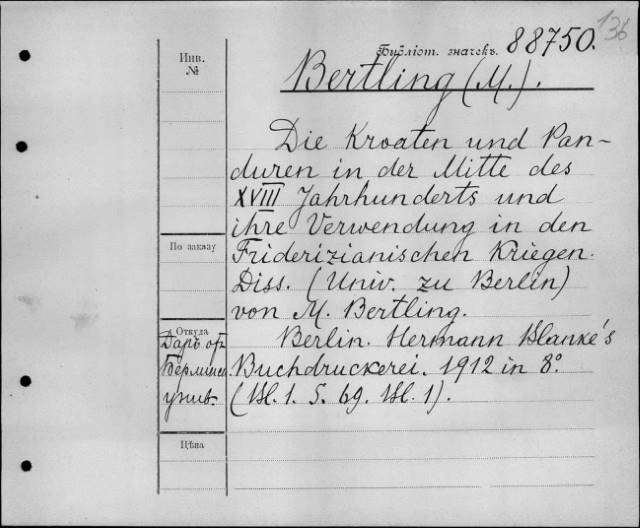 136
Библіот. значекъ. 88750.
Инв.
№
Bertling (M.).
Die Kroaten und Pan-
duren in der Mitte des
XVIII Jahrhunderts und
ihre Verwendung in den
По заказу
Friderizianischen Kriegen.
Diss. (Univ. zu Berlin)
von M. Bertling.
Откуда
Даръ от
Берлинск.
унив.
Berlin. Hermann Blanke's
Buchdruckerei. 1912 in 8°.
(Bl. 1. S. 69. Bl. 1).
Цѣна